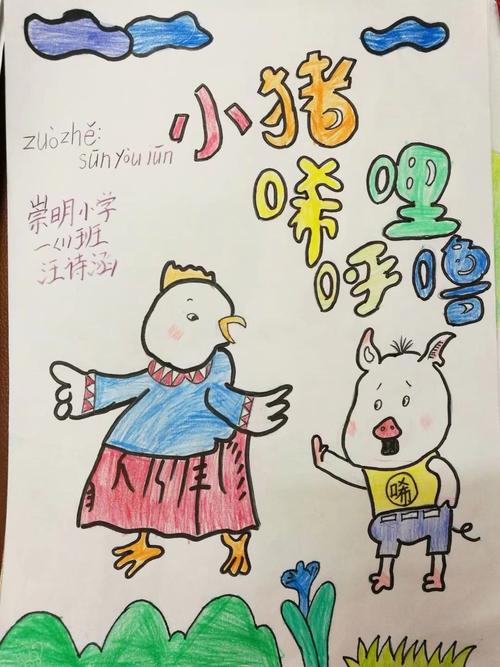 小猪
唏哩
呼噜
zuòzhě:
sūnyòuiūn
崇明小学
一(1)班
汪诗涵
唏